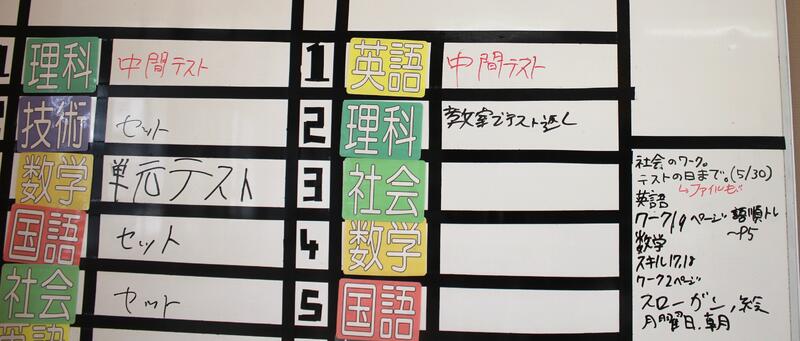 理科 中間テスト
技術 セット
数学 単元テスト
国語 セット
社会 セット
1 英語 中間テスト
2 理科 教室でテスト返し
3 社会
4 数学
5 国語
社会のワーク。
テストの日まで。(5/30)
→ファイルも
英語
ワーク19ページ 語順トレ
~P5
数学
スキル17,18
ワーク2ページ
スローガン,絵
月曜日,朝